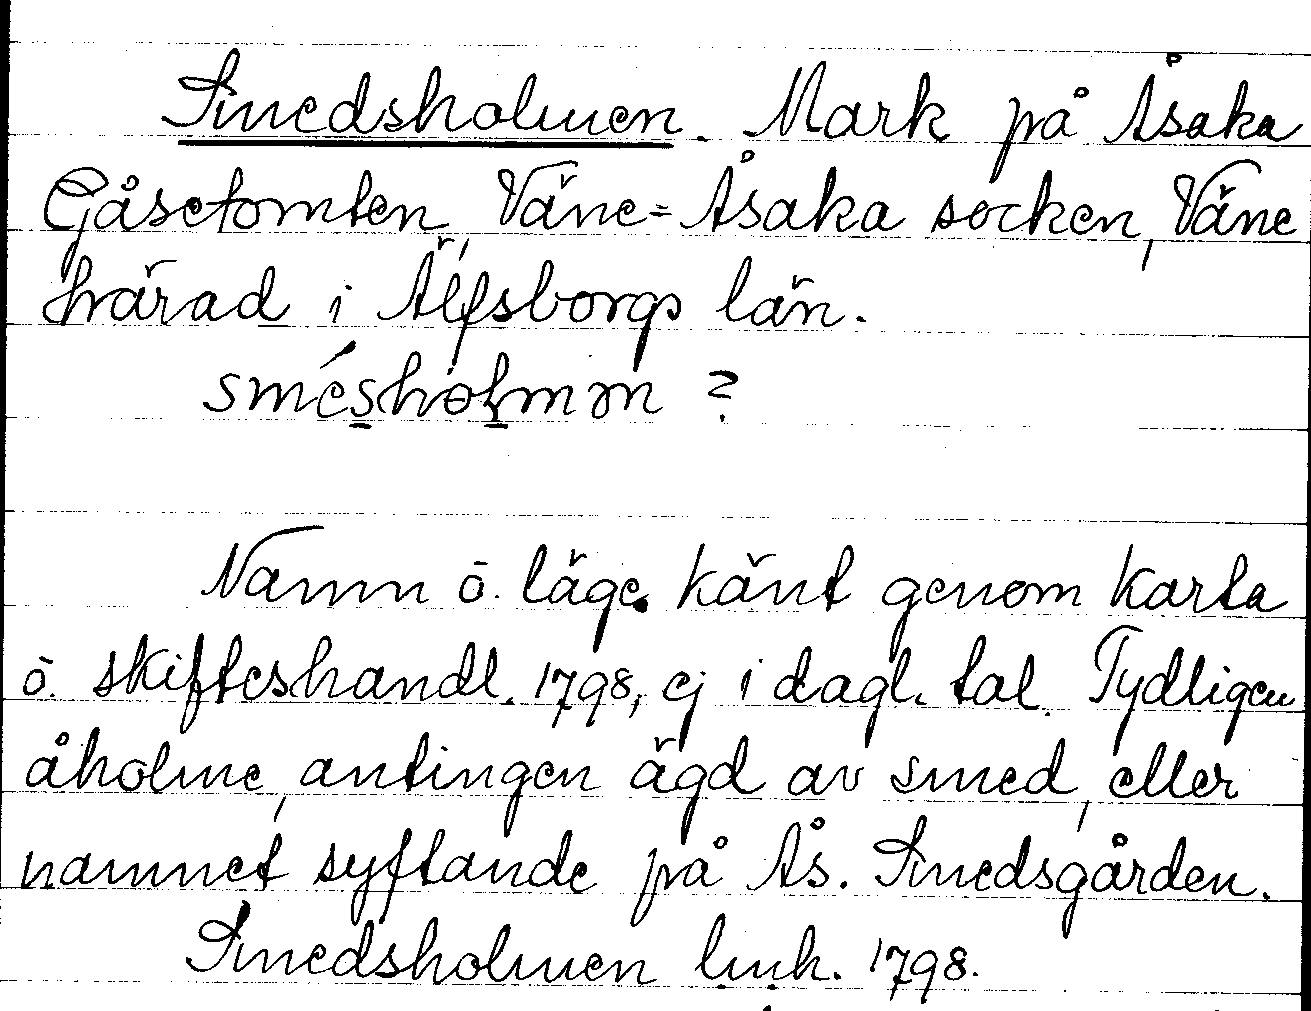 Smedsholmen. Mark på Åsaka
Gåsetomten, Väne=Åsaka socken, Väne
härad i Älfsborgs län.
smésholmm ?
Namn o. läge känt genom karta
o. skifteshandl. 1798, ej i dagl. tal. Tydligen
åholme, antingen ägd av smed, eller
namnet syftande på Ås. Smedsgården.
Smedsholmen lmh. 1798.